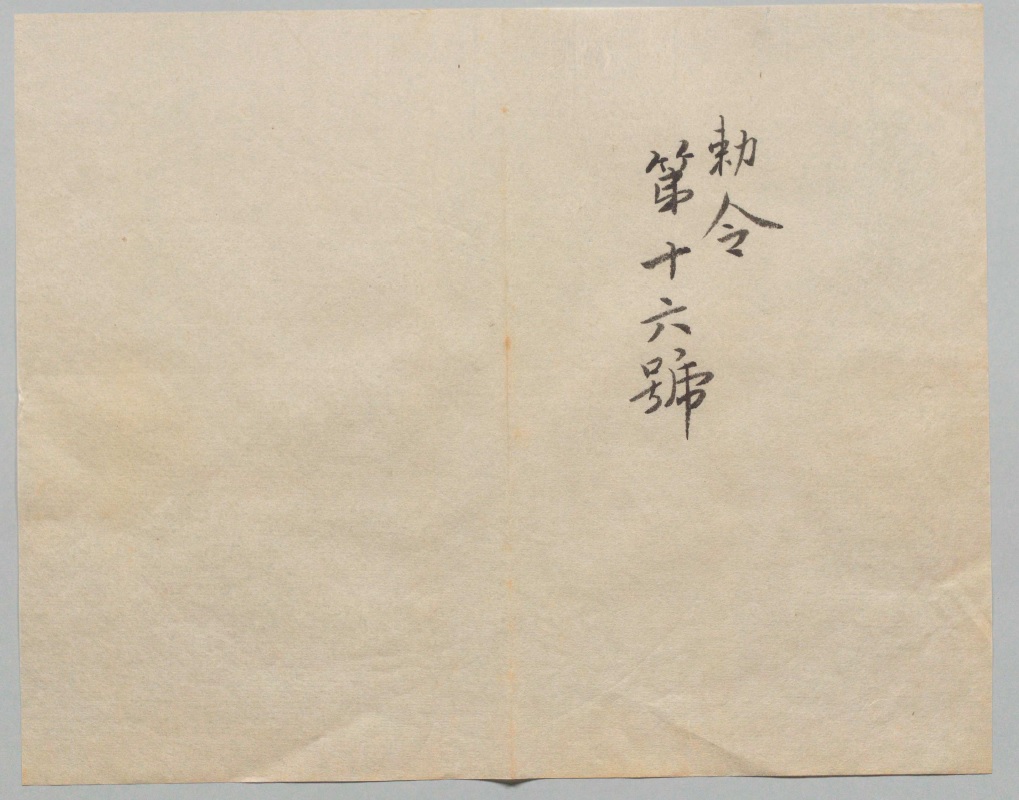 勅令
第十六號